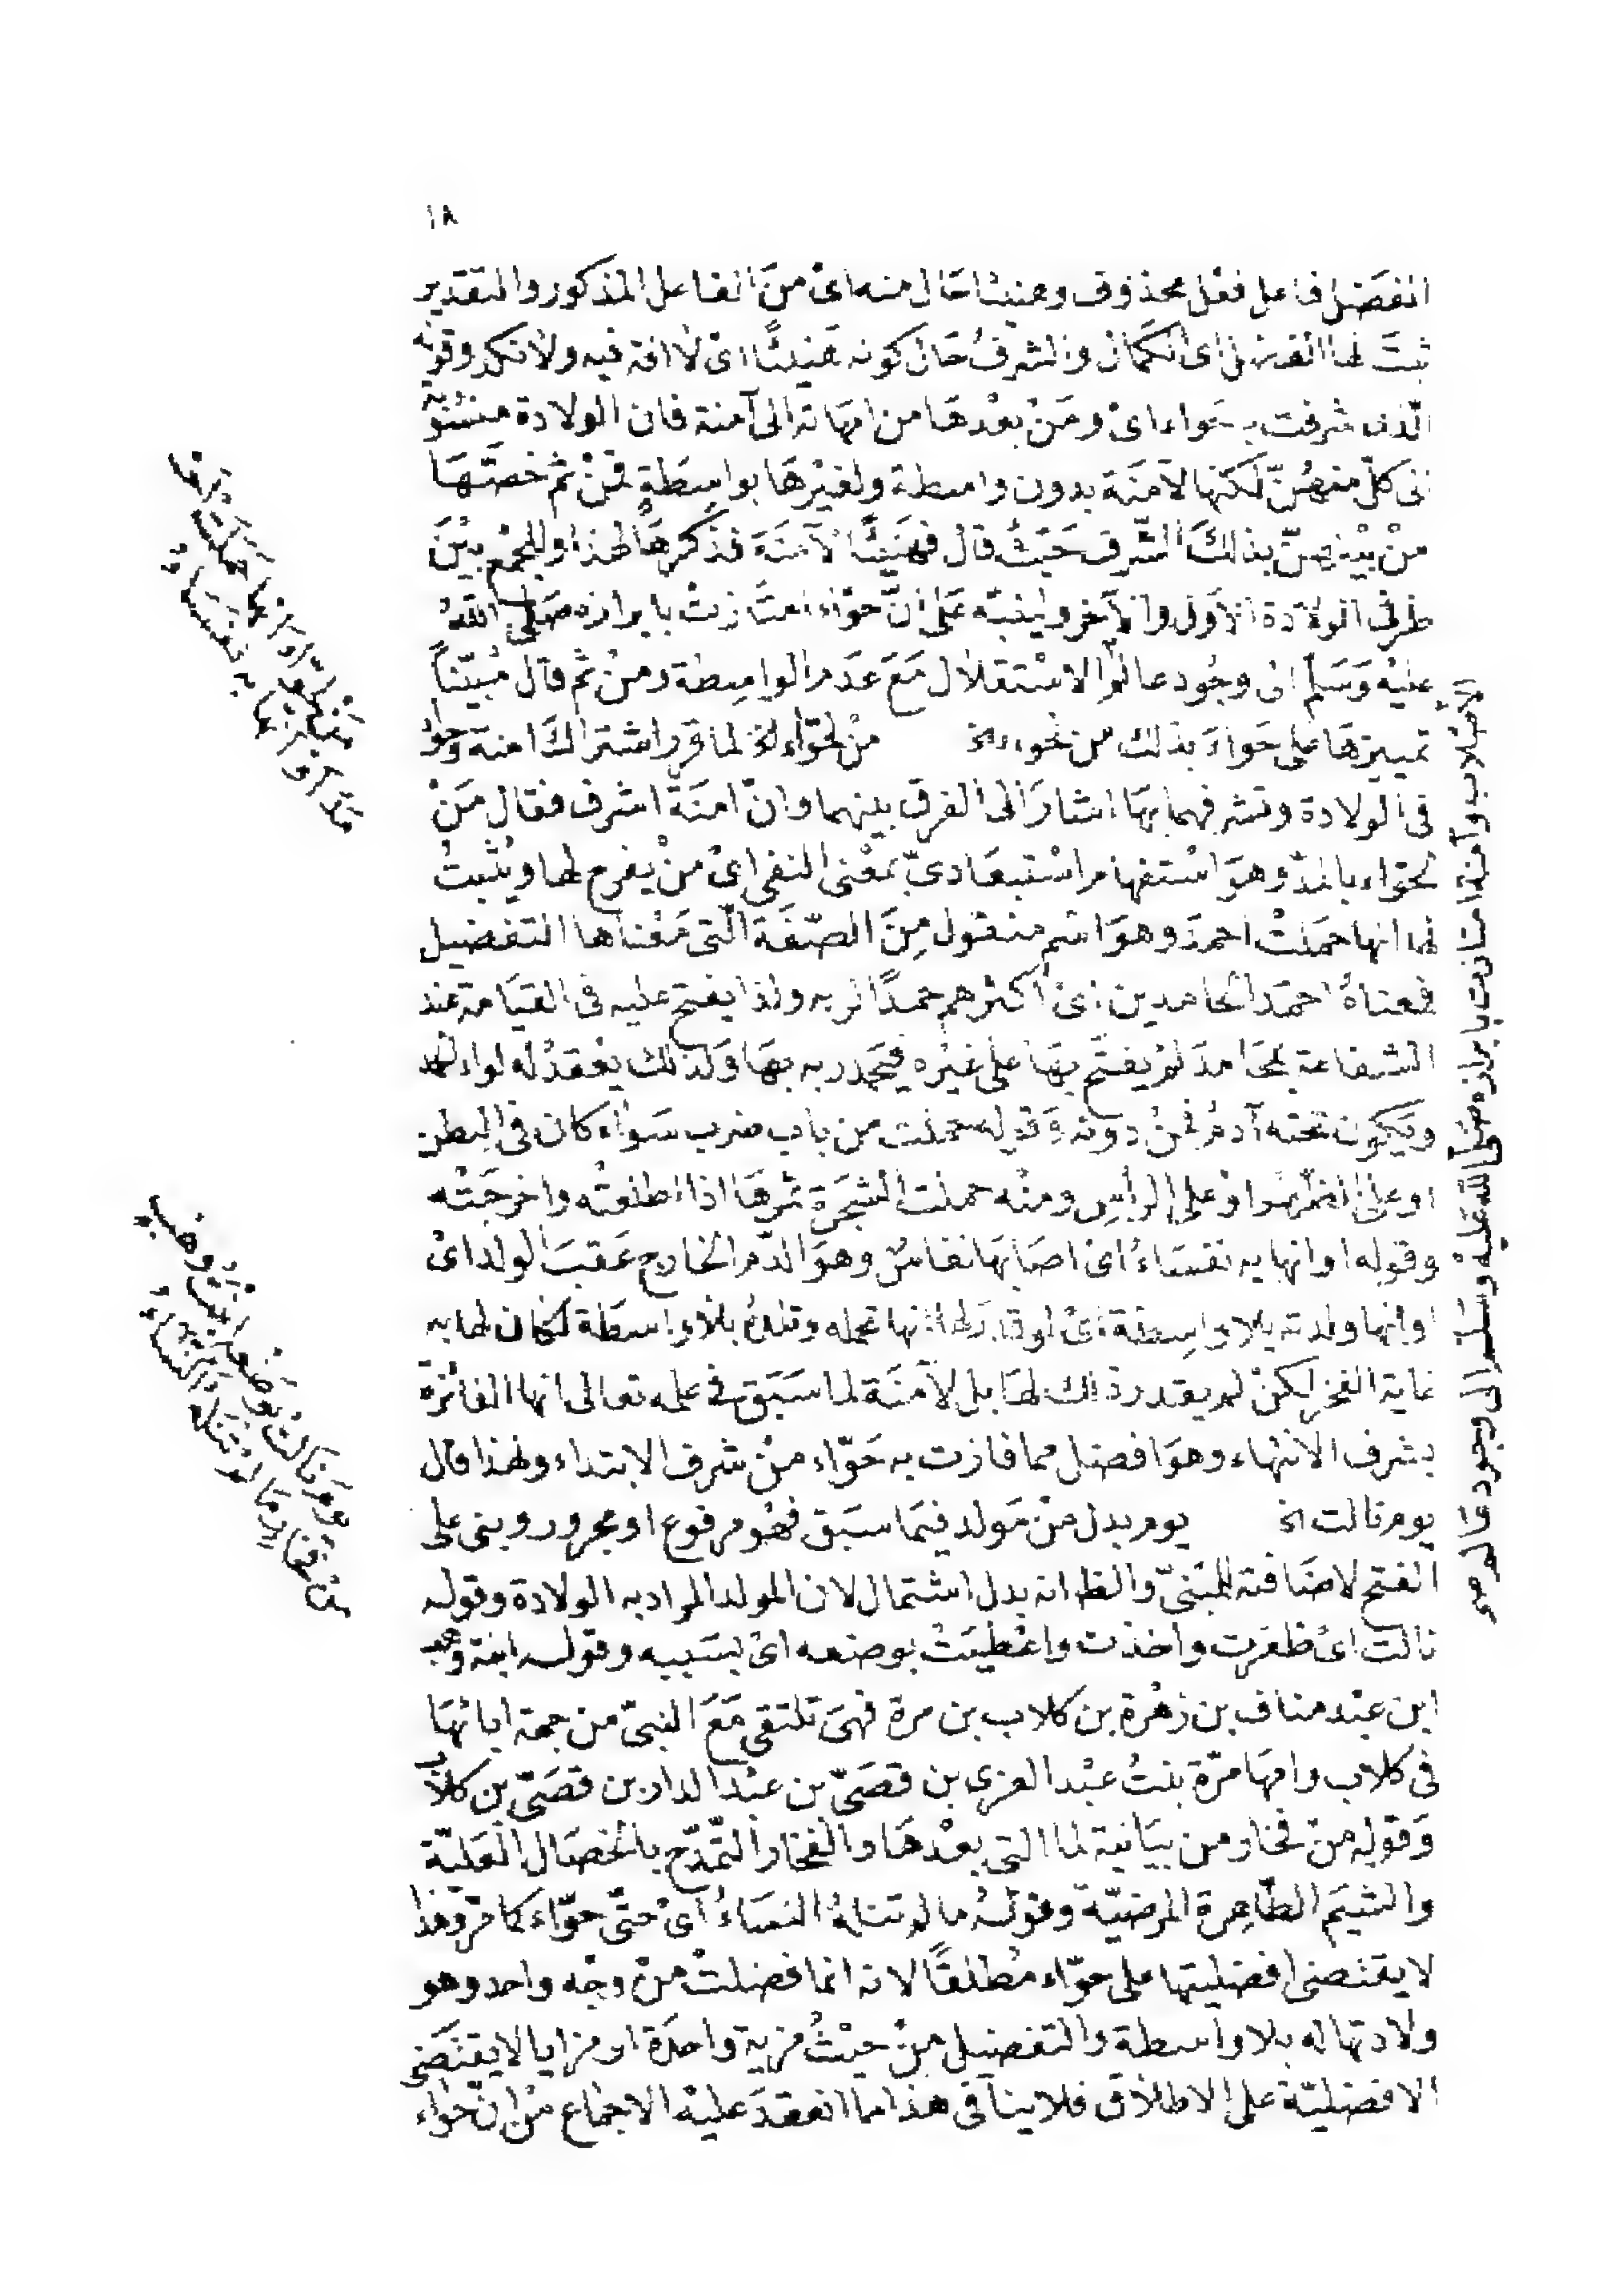 ١٨
الفضل فاعل فعل محذوف وهنيئا حال منه اىْ منَ الفاعل المذكور والتقدير
ثبتَ لها الفضل اى الكمال والشرفُ حَال كونه هَنيئًا اىْ لا افة فيه ولا نكد وقوله
الّذى شرفت به حواء اىْ ومَنْ بعْدهَا من امهَاته الى آمنة فان الولادة منسُوبة
الى كلّ منهُنّ لكنّها لآمنَة بدون واسطة ولغيْرهَا بواسِطَةٍ فمنْ ثمّ خصَّهَا
منْ بيْنهنّ بذلكَ الشّرف حَيثُ قال فهَنيئًا لآمنَةَ فذكرهَا لهذا وللجمْع بيْنَ
طرفى الولادة الأول والآخر ولينبّه عَلى انّ حوّاء امتَازتْ بابرازه صَلى اللهُ
عليْه وَسَلم الى وجُود عالم الاسْتقلال مَعَ عدَم الواسِطة ومنْ ثمّ قال مُبيّنًا
تمييزهَا على حَواءَ بذلك من لحواء الخ مَنْ لحَوّاء الخ لما قرر اشترَاكَ امنة وَحواء
فى الولادة وتشرفهما بهَا اشارَ الى الفرق بينهما وانّ امنَةَ اشرف فقال مَنْ
لحوّاء بالمدّ وهوَ اسْتفهام اسْتبعَادىّ بمعْنى النفى اىْ منْ يفرح لها ويُثبتُ
لها انها حمَلتْ احمدَ وهوَ اسْم منقول مِنَ الصّفَة الّتى مَعْناها التفضيل
فمعناهُ احمَد الحامدين اىْ اكثرهم حمدًا لربه ولذا يفتح عليه فى القيَامة عند
الشفاعة بمحَامدَ لمْ يفتَح بهَا على غيْره فيحمَد ربه بهَا وَلذلك يعْقدُ له لواء الحمد
وَيكون تحته آدمُ فمنْ دونه وَقوله حملت من باب ضرب سَواء كان فى البطن
او على الظهْر اوْ على الرأسِ ومنْه حملت الشجَرة ثمرهَا اذا اطلعتْه واخرجَتْه
وقوله او انها به نفسَاءُ اىْ اصَابهَا نفاسٌ وهوَ الدّم الخارج عَقبَ الولد اىْ
او انها ولدته بلا واسِطة اىْ لو قدّرَ لها انها تحمله وتلدهُ بلا واسطَة لكان لها به
غاية الفخر لكنْ لم يقدر ذلك لهَا بل لآمنَة لما سَبَق فى علمه تعالى انها الفائزة
بشرف الانتهاء وهوَ افضل مما فازت به حَوّاء منْ شرف الابتداء ولهذا قال
يوم نالت الخ يوم بدل منْ مَولد فيمَا سبَق فهْو مرفوع او مجرور وبنى على
الفتح لاضَافته للمبْنىّ والظ انه بدل اشتمال لان المولد المراد به الولادة وقوله
نالت اىْ ظفرت واخذت واعْطيَتْ بوضعه اىْ بسَببه وقوله ابنة وهب
ابن عبْد مناف بن زهْرة بن كلاب بن مرة فهىَ تلتقى مَعَ النبىّ من جهة ابائهَا
فى كلاب وامهَا مرّة بنتُ عبْد العزى بن قصَىّ بن عبْد الدار بن قصَىّ بن كلاب
وَقوله منْ فخار من بيَانية لما التى بعْدهَا والفخار التّمدّح بالخصَال العَليّة
والشيَم الطّاهِرة المرضيّة وقولهُ ما لم تنلهُ النسَاءُ اىْ حتَّى حوّاء كما مرّ وهذا
لا يقتضى افضليتها على حوّاء مُطلقًا لانه انما فضلتْ منْ وجْه واحد وهو
ولادتها له بلا واسطة والتفضيل منْ حيْثُ مزية واحدَة او مزايا لا يقتَضى
الافضليّة على الاطلاق فلا ينافى هذا ما انعقدَ عليْه الاجماع منْ انّ حَوّاء
مَنْ لحوّاءَ انها حملت احمد
او انها به نفساءُ
يَومَ نالتْ بوَضعه ابنةُ وَهب
من فخارٍ ما لم تنله النساءُ
الاصْلاب وآمنة امتازت بابرازه صَلى الله عَليْه وسَلم الى وجود عَالم